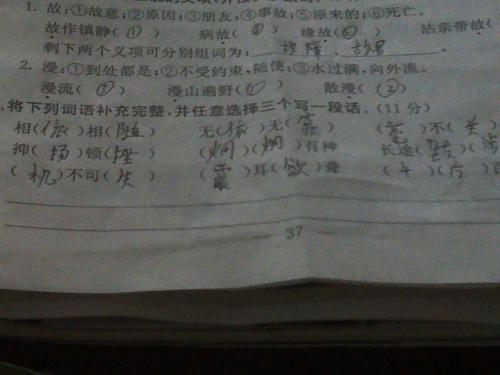 1. 故:①故意;②原因;③朋友;④事故;⑤原来的;⑥死亡。
故作镇静(①) 病故( ) 缘故(②) 沾亲带故(
剩下两个义项可分别组词为: 故障、故居 。
2. 漫:①到处都是;②不受约束,随便;③水过满,向外流。
漫流( ) 漫山遍野(①) 散漫(②)
、将下列词语补充完整,并任意选择三个写一段话。(11 分)
相(依)相(随) 无(依)无(靠) ( )不(关)
抑(扬)顿(挫) (炯)(炯)有神 长途(跋)(涉
(机)不可(失) (震)耳(欲)聋 (千)(方)百
— 37 —